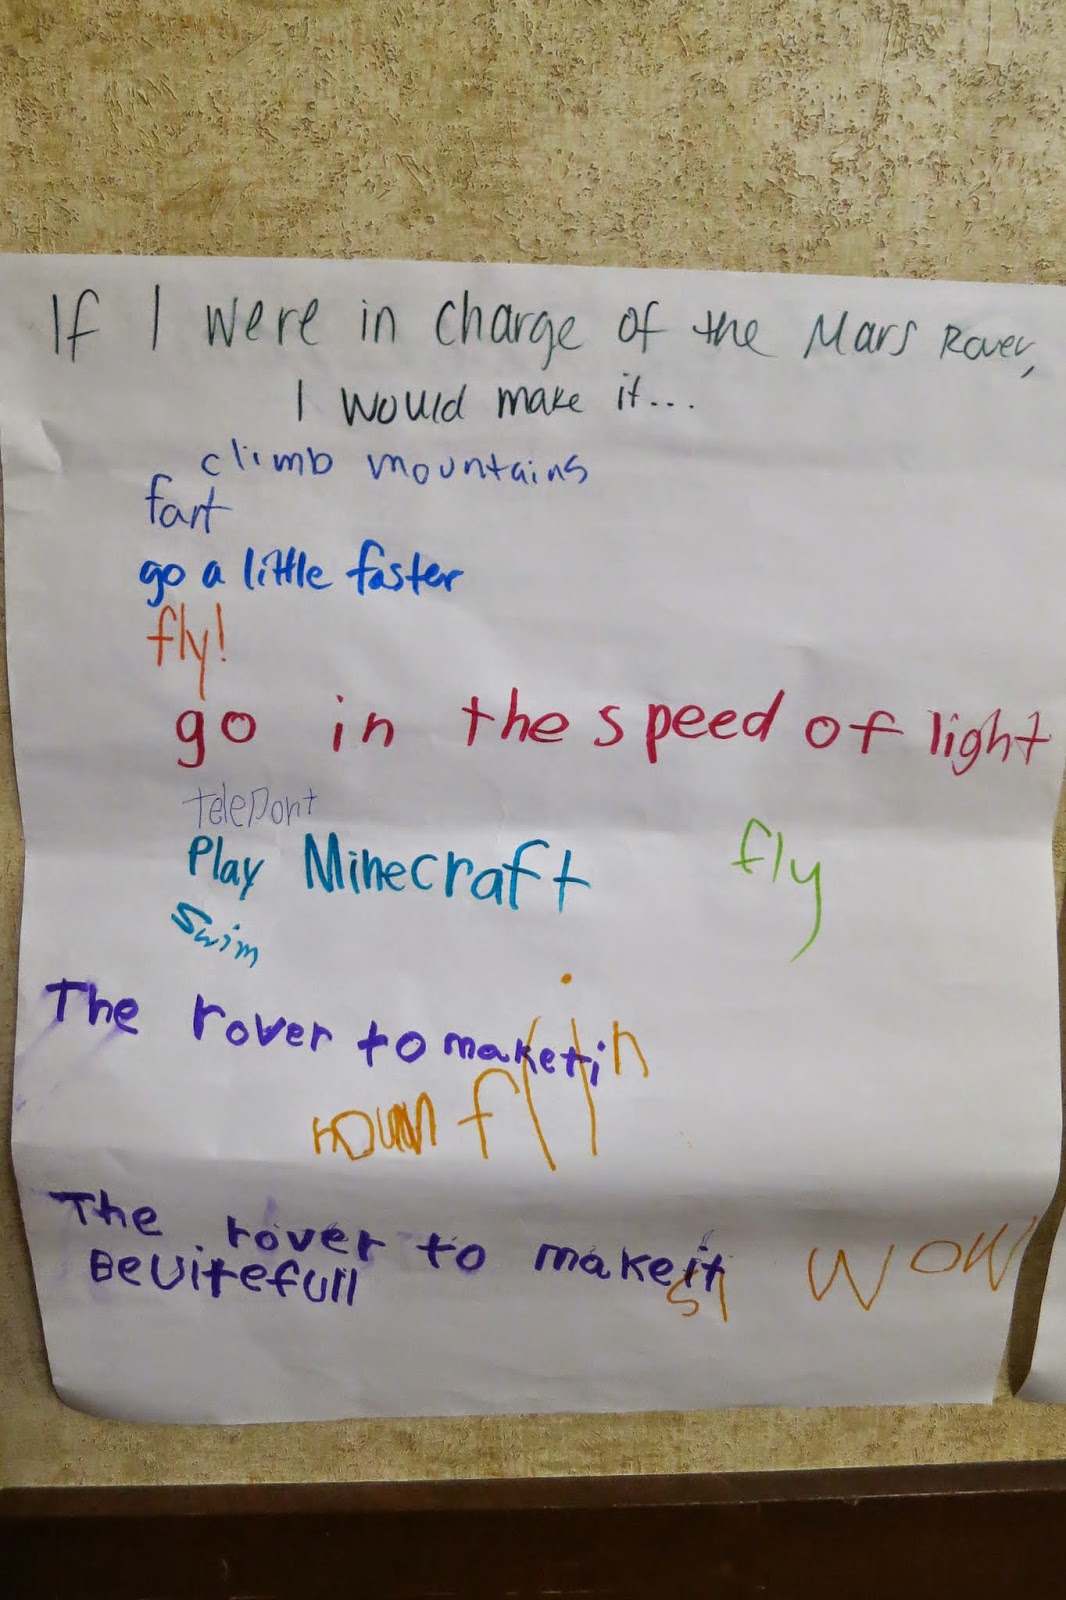 If I were in charge of the Mars Rover,
I would make it...
climb mountains
fart
go a little faster
fly!
go in the speed of light
teleport
Play Minecraft
fly
swim
The rover to make
The rover to make it
BeUitefull
wow